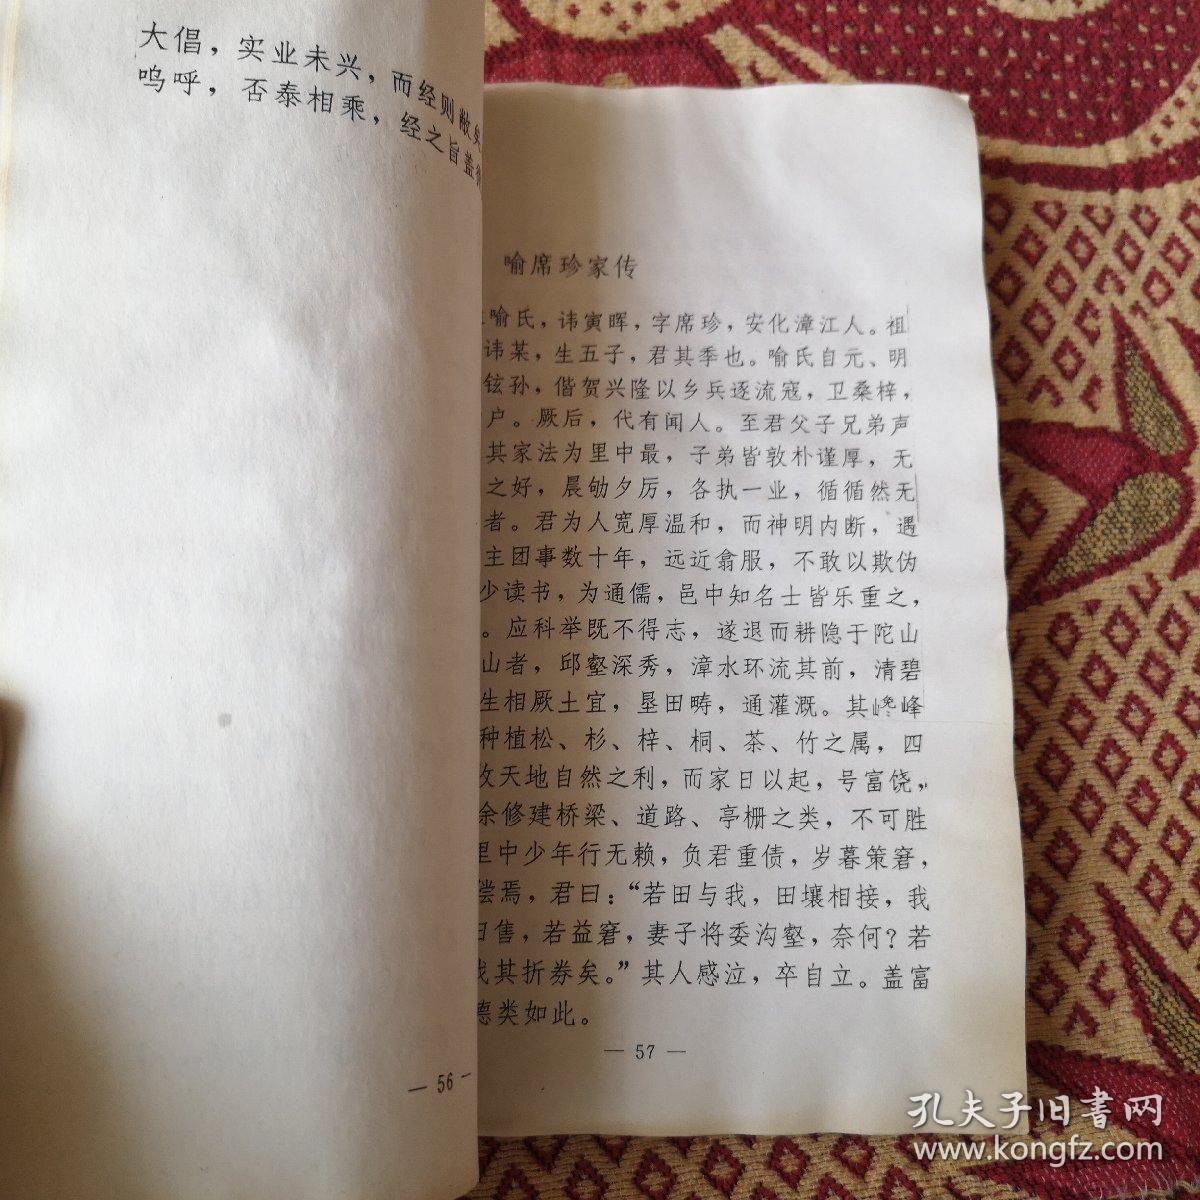 大倡，实业未兴，而经则敝矣
呜呼，否泰相乘，经之旨盖
— 56 —
喻席珍家传
喻氏，讳寅晖，字席珍，安化漳江人。祖
讳某，生五子，君其季也。喻氏自元、明
铉孙，偕贺兴隆以乡兵逐流寇，卫桑梓，
户。厥后，代有闻人。至君父子兄弟声
其家法为里中最，子弟皆敦朴谨厚，无
之好，晨劬夕厉，各执一业，循循然无
者。君为人宽厚温和，而神明内断，遇
主团事数十年，远近翕服，不敢以欺伪
少读书，为通儒，邑中知名士皆乐重之，
。应科举既不得志，遂退而耕隐于陀山
山者，邱壑深秀，漳水环流其前，清碧
生相厥土宜，垦田畴，通灌溉。其巉峰
种植松、杉、梓、桐、茶、竹之属，四
收天地自然之利，而家日以起，号富饶，
余修建桥梁、道路、亭栅之类，不可胜
里中少年行无赖，负君重债，岁暮策窘，
偿焉，君曰：“若田与我，田壤相接，我
日售，若益窘，妻子将委沟壑，奈何？若
我其折券矣。”其人感泣，卒自立。盖富
德类如此。
— 57 —
孔夫子旧書网
www.kongfz.com